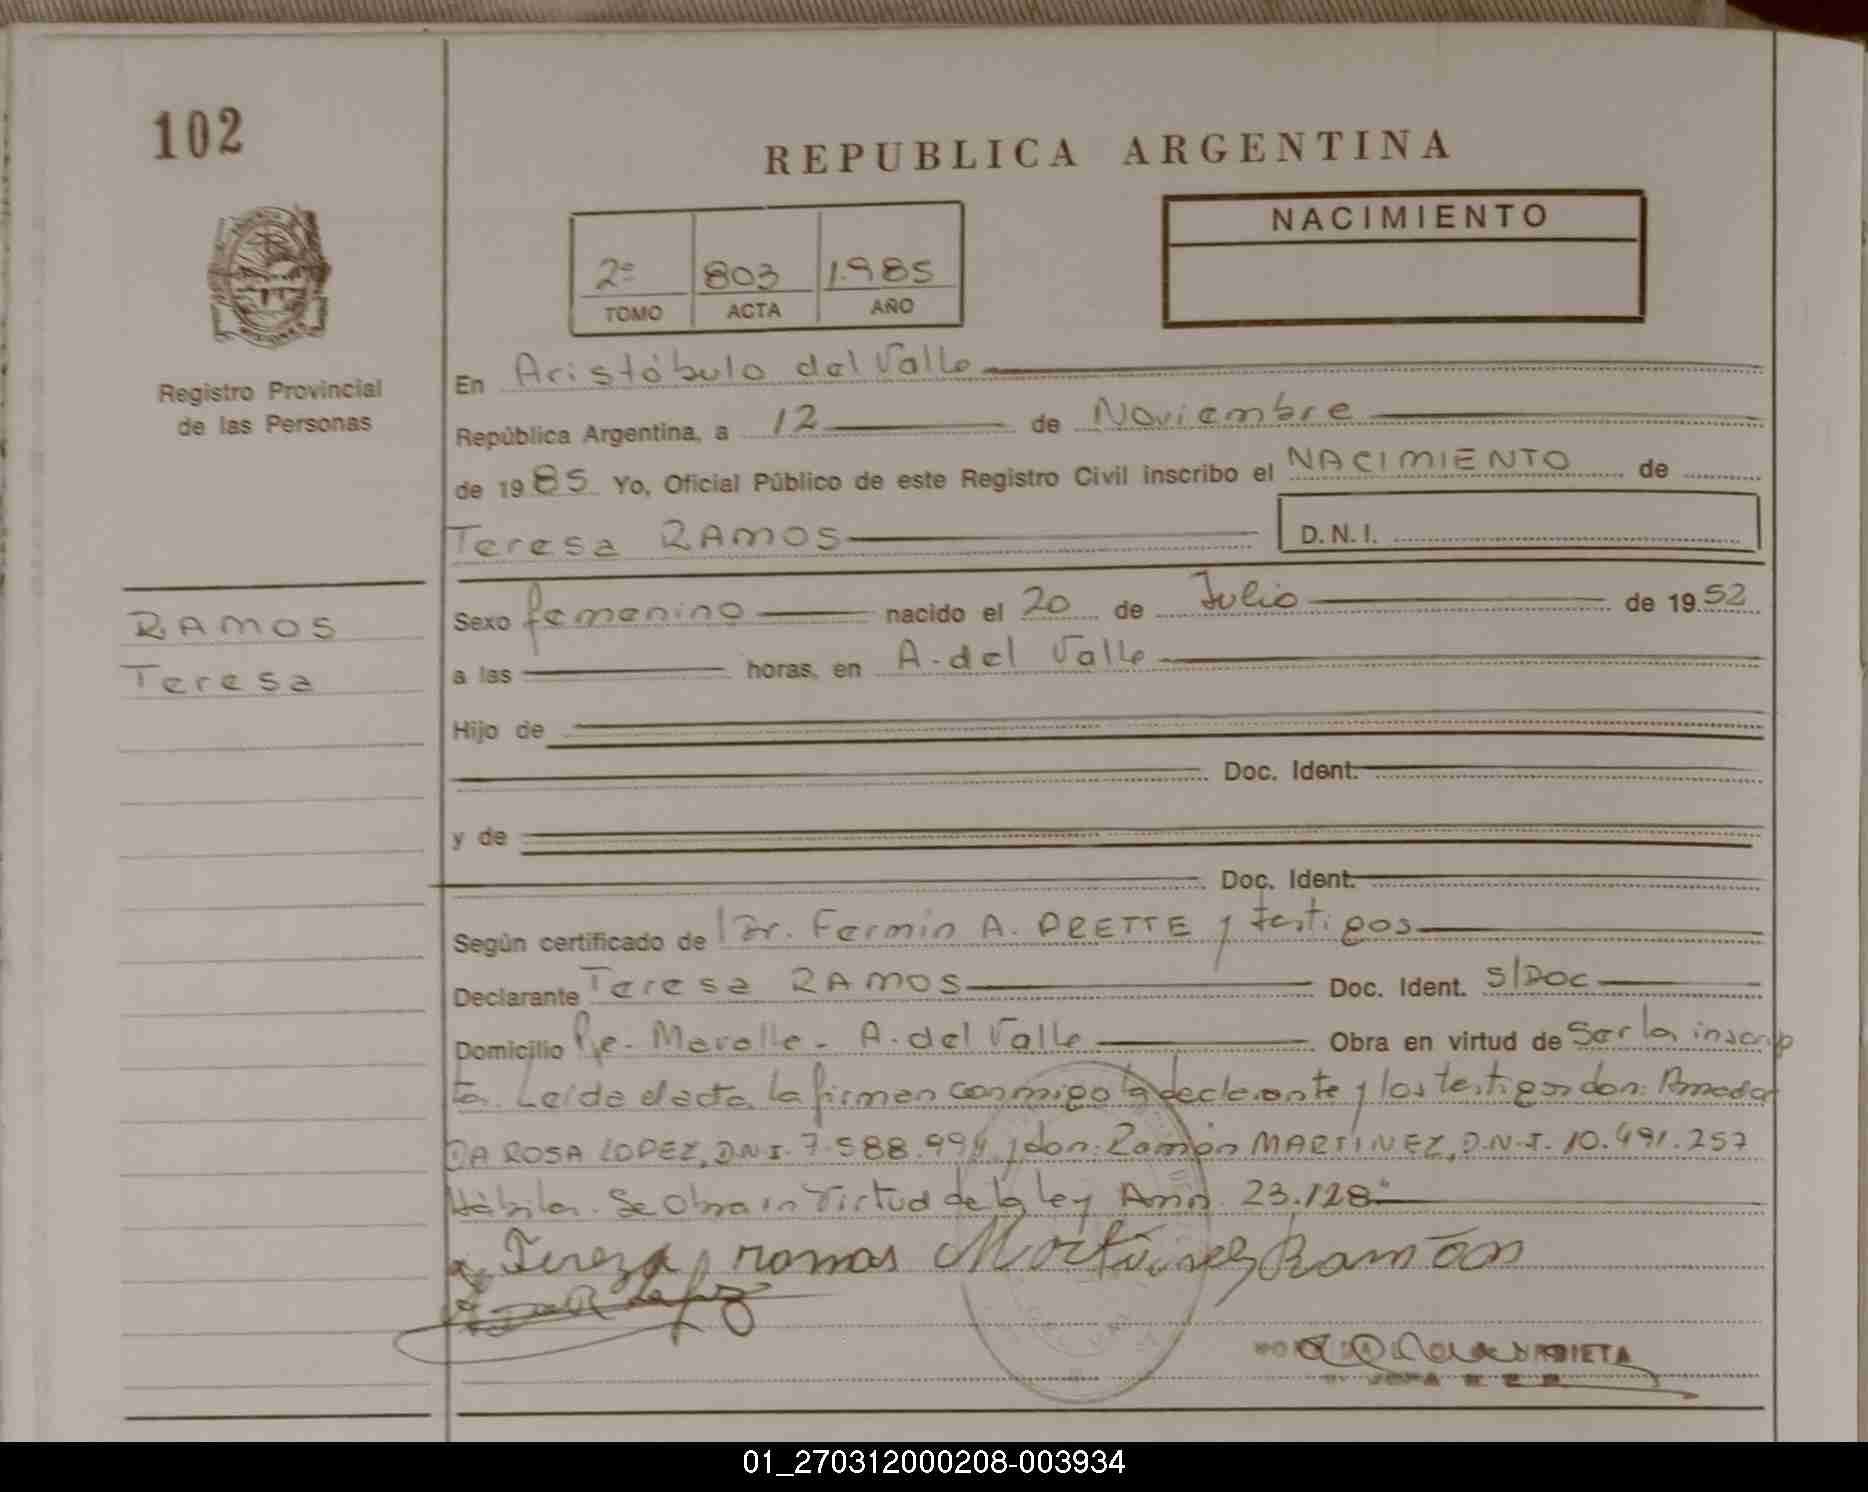 102
REPUBLICA ARGENTINA
NACIMIENTO
2º 803 1.985
TOMO ACTA AÑO
Registro Provincial
de las Personas
En Aristóbulo del Valle
República Argentina, a 12 de Noviembre
de 1985 Yo, Oficial Público de este Registro Civil inscribo el NACIMIENTO de
Teresa RAMOS D.N.I.
RAMOS
Teresa
Sexo femenino nacido el 20 de Julio de 1952
a las horas, en A. del Valle
Hijo de
Doc. Ident.
y de
Doc. Ident.
Según certificado de Dr. Fermín A. y testigos
Declarante Teresa RAMOS Doc. Ident. S/DOC
Domicilio A. del Valle Obra en virtud de Ser la inscrip
ta. Leída el acta la firman conmigo la declarante y los testigos don:
DA ROSA LOPEZ, D.N.I. 7.588. y don: Ramón MARTINEZ, D.N.I. 10.491.257
Hábiles. Se Obra in Virtud de la ley 23.128
Tereza ramos Martinez Ramón
01_270312000208-003934